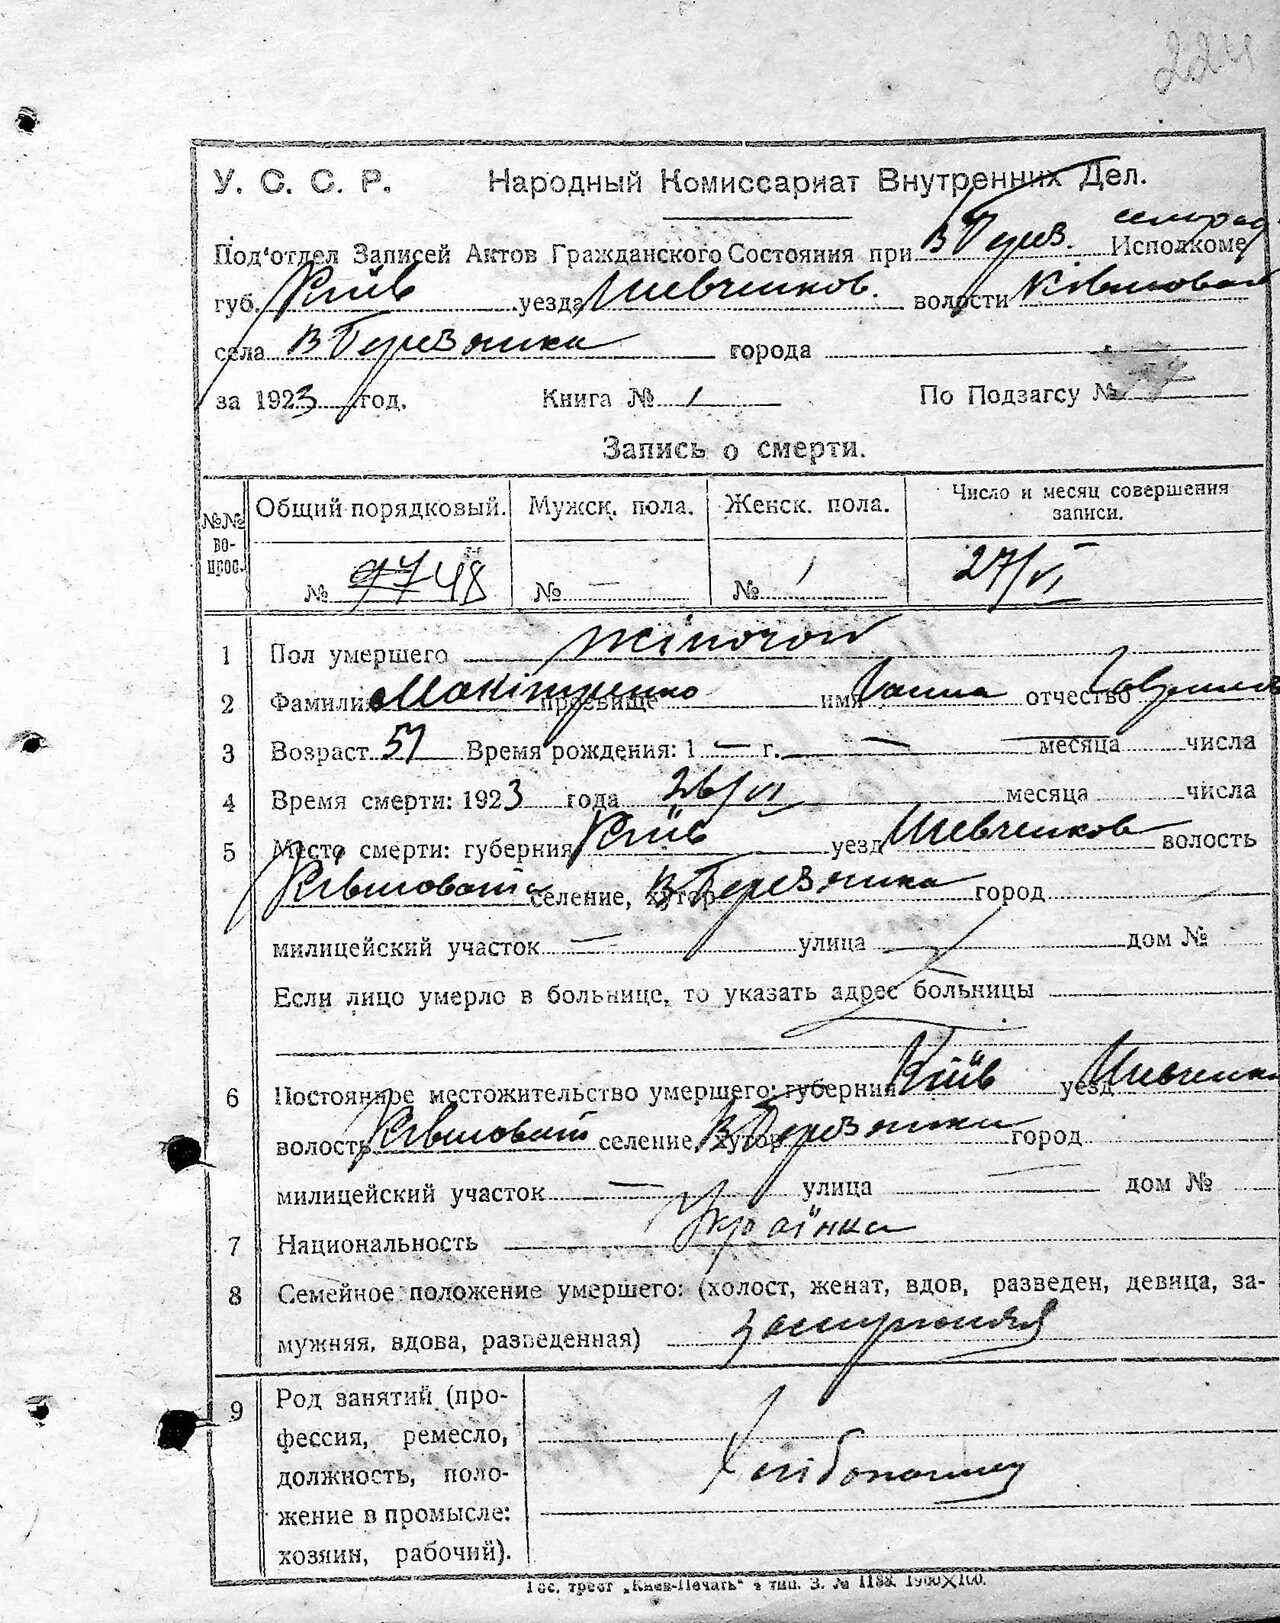 224
У. С. С. Р. Народный Комиссариат Внутренних Дел.
Под'отдел Записей Актов Гражданского Состояния при В Берез. сельрад Исполкоме
губ. Київ уезда Шевченков. волости Ківшовата
села В Березянка города
за 1923 год. Книга № 1 По Подзагсу №
Запись о смерти.
№№ вопрос. Общий порядковый. Мужск. пола. Женск. пола. Число и месяц совершения записи.
№ 97 48 № — № 1 27/VI
1 Пол умершего жіночой
2 Фамилия прозвище имя Ганна отчество
3 Возраст 57 Время рождения: 1 — г. — месяца числа
4 Время смерти: 1923 года 26/VI месяца числа
5 Место смерти: губерния Київ уезд Шевченков волость
Ківшовата селение, хутор В Березянка город
милицейский участок — улица дом №
Если лицо умерло в больнице, то указать адрес больницы
6 Постоянное местожительство умершего: губерния Київ уезд Шевченко
волость Ківшоват селение, хутор В Березянка город
милицейский участок — улица — дом №
7 Национальность Українка
8 Семейное положение умершего: (холост, женат, вдов, разведен, девица, за-
мужняя, вдова, разведенная) замужняя
9 Род занятий (про-
фессия, ремесло,
должность, поло- Хліборобш
жение в промысле:
хозяин, рабочий).
Гос. трест „Киев-Печать" 4 тип. З. № 1188. 1900X100.